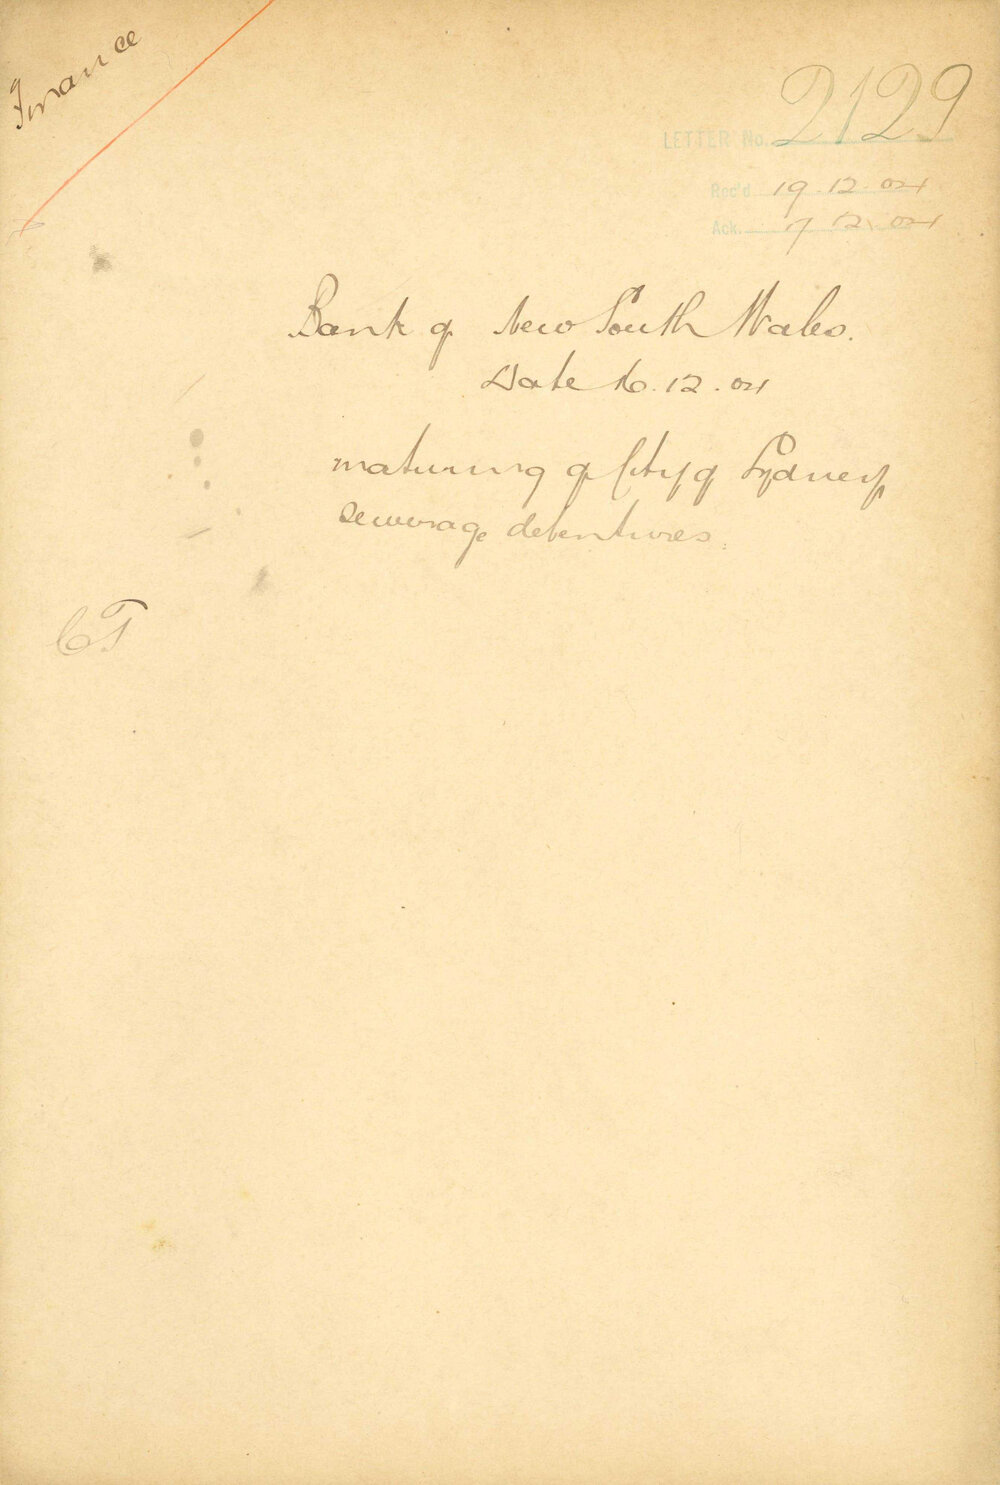 Finance
LETTER No. 2129
Rec'd 19.12.04
Ack. 12.04
Bank of New South Wales.
Date 16.12.04
maturing of City of Sydney
sewerage debentures.
CT